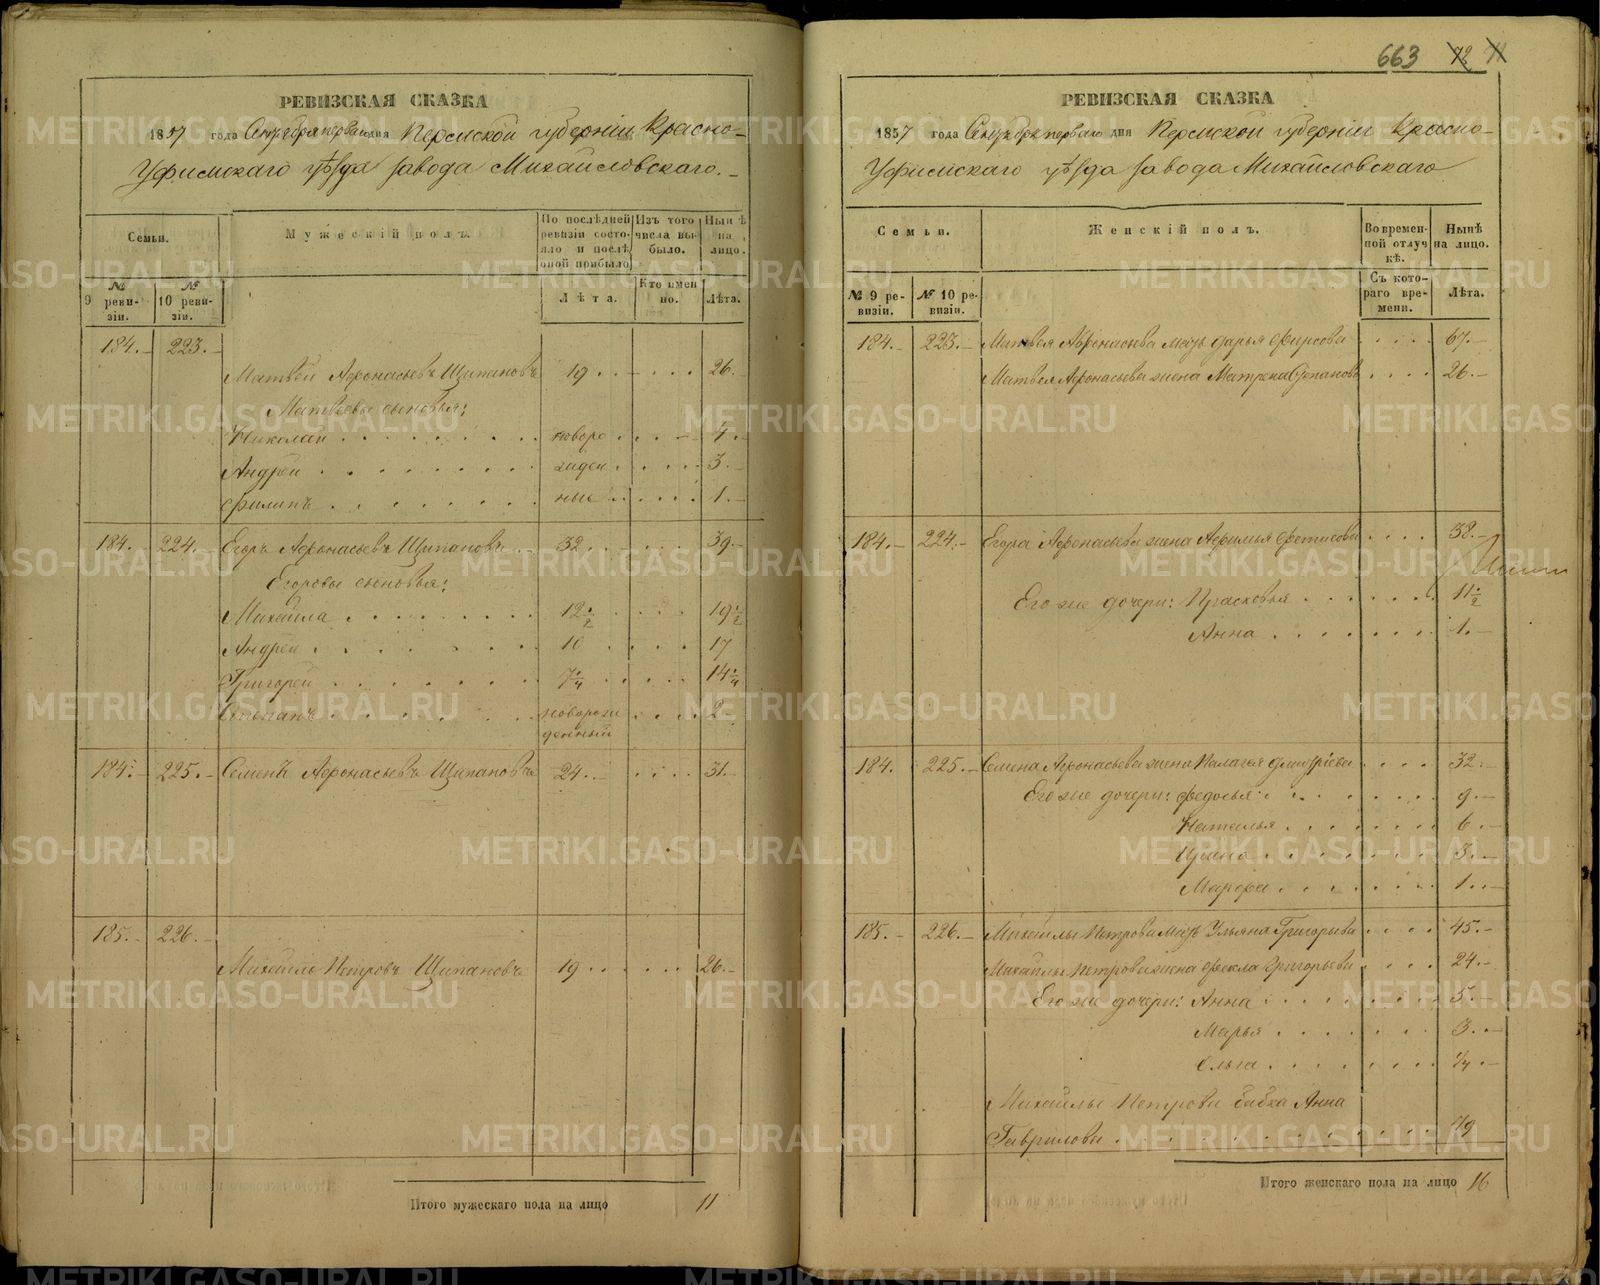 РЕВИЗСКАЯ СКАЗКА
1857 года Сентября перваго дня Пермской губернии Красно-
Уфимскаго уѣзда завода Михайловскаго.
Семьи.
Мужескій полъ.
По послѣдней ревизіи состояло и послѣ оной прибыло
Изъ того числа выбыло.
Нынѣ на лицо.
№ 9 ревизіи.
№ 10 ревизіи.
Лѣта.
Кто именно.
Лѣта.
184. 223.
Матвей Афонасьевъ Щипановъ 19 26.
Матвеевы сыновья:
Николай новоро 4.
Андрей жден 3.
Филипъ ные 1.
184. 224. Егоръ Афонасьевъ Щипановъ 32 39.
Егоровы сыновья:
Михайла 12 1/2 19 1/2
Андрей 10 17
Григорей 7 1/4 14 1/4
Степанъ новорож 2
денный
184. 225. Семенъ Афонасьевъ Щипановъ 24. 31.
185. 226.
Михайло Петровъ Щипановъ 19 26.
Итого мужескаго пола на лицо 11
663
РЕВИЗСКАЯ СКАЗКА
1857 года Сентября перваго дня Пермской губернии Красно-
Уфимскаго уѣзда завода Михайловскаго
Семьи.
Женскій полъ.
Во временной отлучкѣ.
Нынѣ на лицо.
№ 9 ревизіи.
№ 10 ревизіи.
Съ котораго времени.
Лѣта.
184. 223. Матвея Афонасьева мать Дарья Фирсова 67.
Матвея Афонасьева жена Матрена Степанова 26.
184. 224. Егора Афонасьева жена Афимья Фетисова 38.
Его же дочери: Прасковья 11 1/2
Анна 1.
184. 225. Семена Афонасьева жена Палагея Дмитріева 32.
Его же дочери: Федосья 9.
Наталья 6.
Ирина 3.
Марфа 1.
185. 226. Михайлы Петрова мать Ульяна Григорьева 45.
Михайлы Петрова жена Фекла Григорьева 24.
Его же дочери: Анна 5.
Марья 3.
Ольга 1/4.
Михайлы Петрова бабка Анна
Гаврилова 79
Итого женскаго пола на лицо 16
METRIKI.GASO-URAL.RU